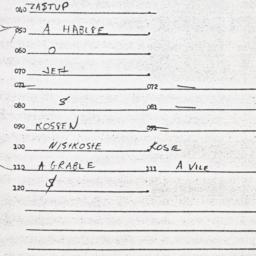 040 ZASTUP
050 A HABLSE
060 O
070 JEH
072 072
080 S 082
090 KOSSEN 092
100 NISIKOSIE ROSE
112 A GRABLE 111 A VILE
120 $